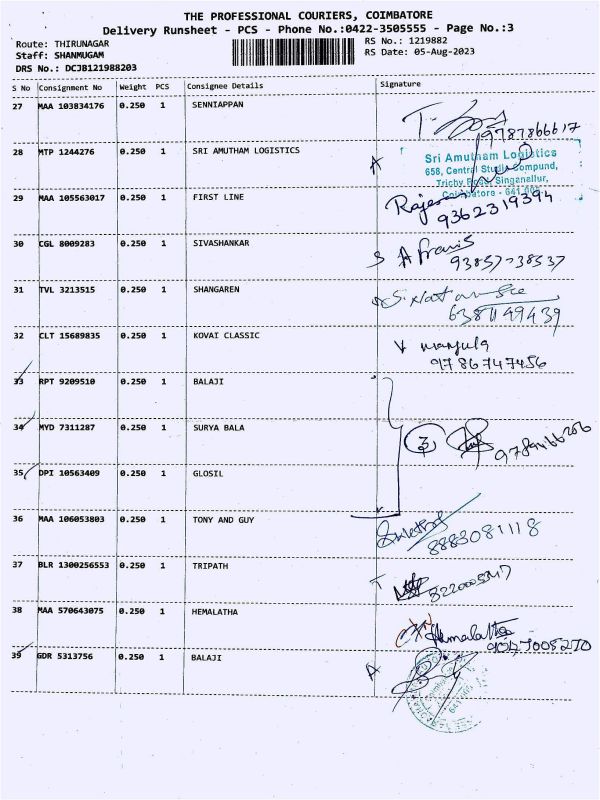 THE PROFESSIONAL COURIERS, COIMBATORE
Delivery Runsheet - PCS - Phone No.:0422-3505555 - Page No.:3
Route: THIRUNAGAR RS No.: 1219882
Staff: SHANMUGAM RS Date: 05-Aug-2023
DRS No.: DCJB121988203
S No Consignment No Weight PCS Consignee Details Signature
27 MAA 103834176 0.250 1 SENNIAPPAN
9787866617
28 MTP 1244276 0.250 1 SRI AMUTHAM LOGISTICS
Sri Amutham Logistics
658, Central Studio Compund,
Trichy Road, Singanallur,
Coimbatore - 641 005
29 MAA 105563017 0.250 1 FIRST LINE
9362319394
30 CGL 8009283 0.250 1 SIVASHANKAR
A Francis
93857-38537
31 TVL 3213515 0.250 1 SHANGAREN
6381149439
32 CLT 15689835 0.250 1 KOVAI CLASSIC
manjula
9786747456
33 RPT 9209510 0.250 1 BALAJI
34 MYD 7311287 0.250 1 SURYA BALA
3
35 DPI 10563409 0.250 1 GLOSIL
36 MAA 106053803 0.250 1 TONY AND GUY
8883081118
37 BLR 1300256553 0.250 1 TRIPATH
38 MAA 570643075 0.250 1 HEMALATHA
Hemalatha
39 GDR 5313756 0.250 1 BALAJI